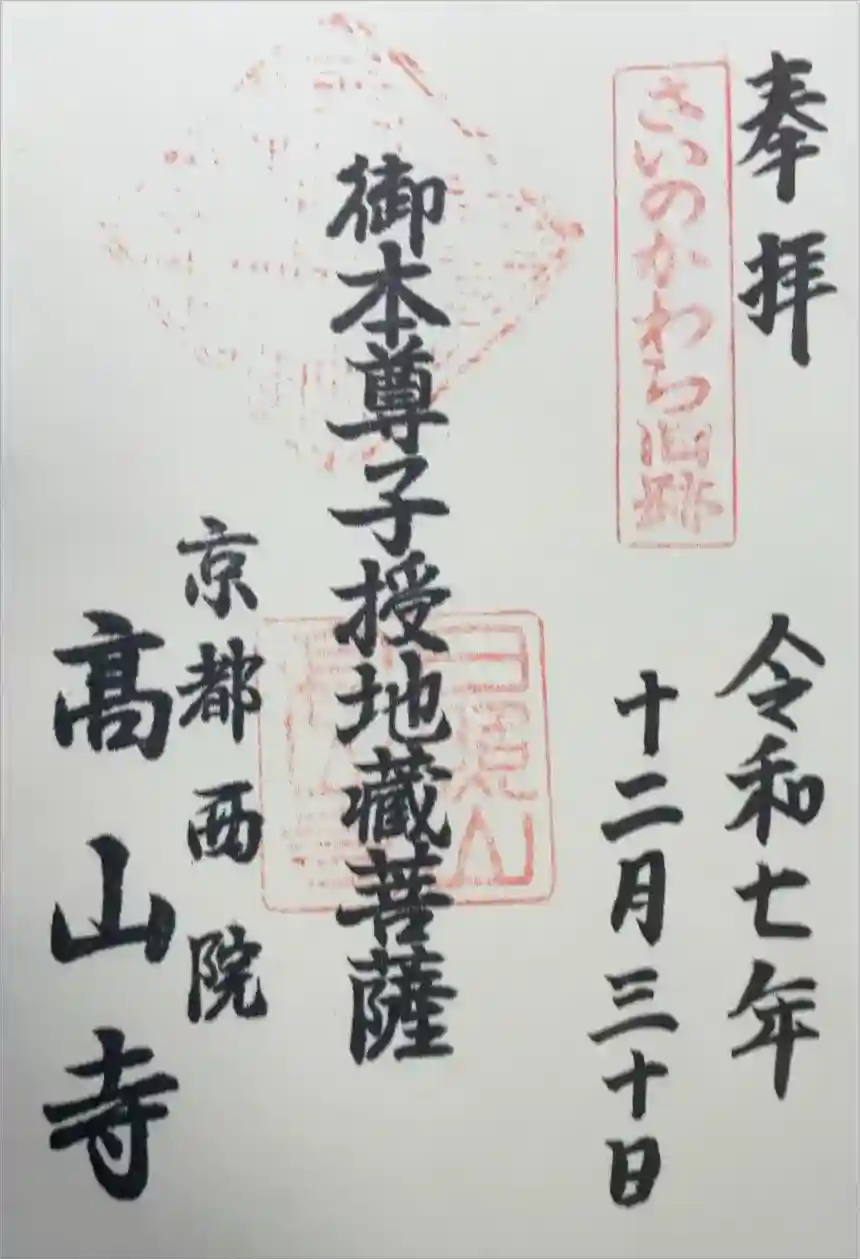 奉拝
さいのかわら旧跡
令和七年
十二月三十日
御本尊子授地蔵菩薩
京都西院
髙山寺